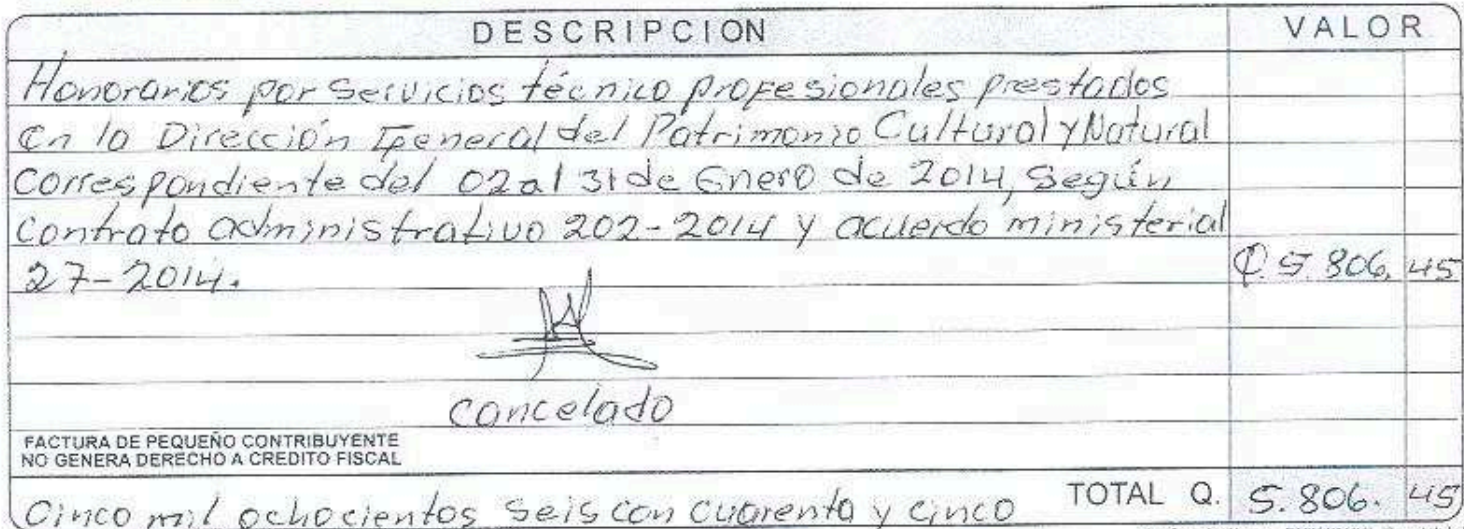 DESCRIPCION VALOR
Honorarios por Servicios técnico profesionales prestados
en la Dirección General del Patrimonio Cultural y Natural
Correspondiente del 02 al 31 de Enero de 2014, Según
Contrato administrativo 202-2014 y acuerdo ministerial
27-2014. Q. 5.806. 45
cancelado
FACTURA DE PEQUEÑO CONTRIBUYENTE
NO GENERA DERECHO A CREDITO FISCAL
Cinco mil ochocientos seis con cuarenta y cinco TOTAL Q. 5.806. 45